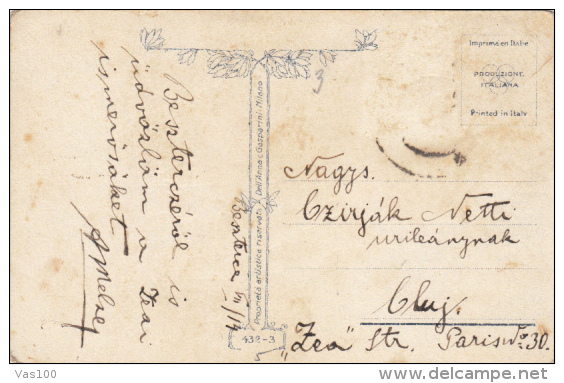 Beszterczéről is
üdvözlöm a Zeai
ismerősöket
Besterce VII/14
Proprietà artistica riservata Dell'Anna & Gasparini - Milano
432-3
3
Imprimé en Italie
PRODUZIONE
ITALIANA
Printed in Italy
Nagys.
Czirják Netti
urileánynak
Cluj.
„Zea" Str. Paris No 30.
© Vas100
delcampe.net